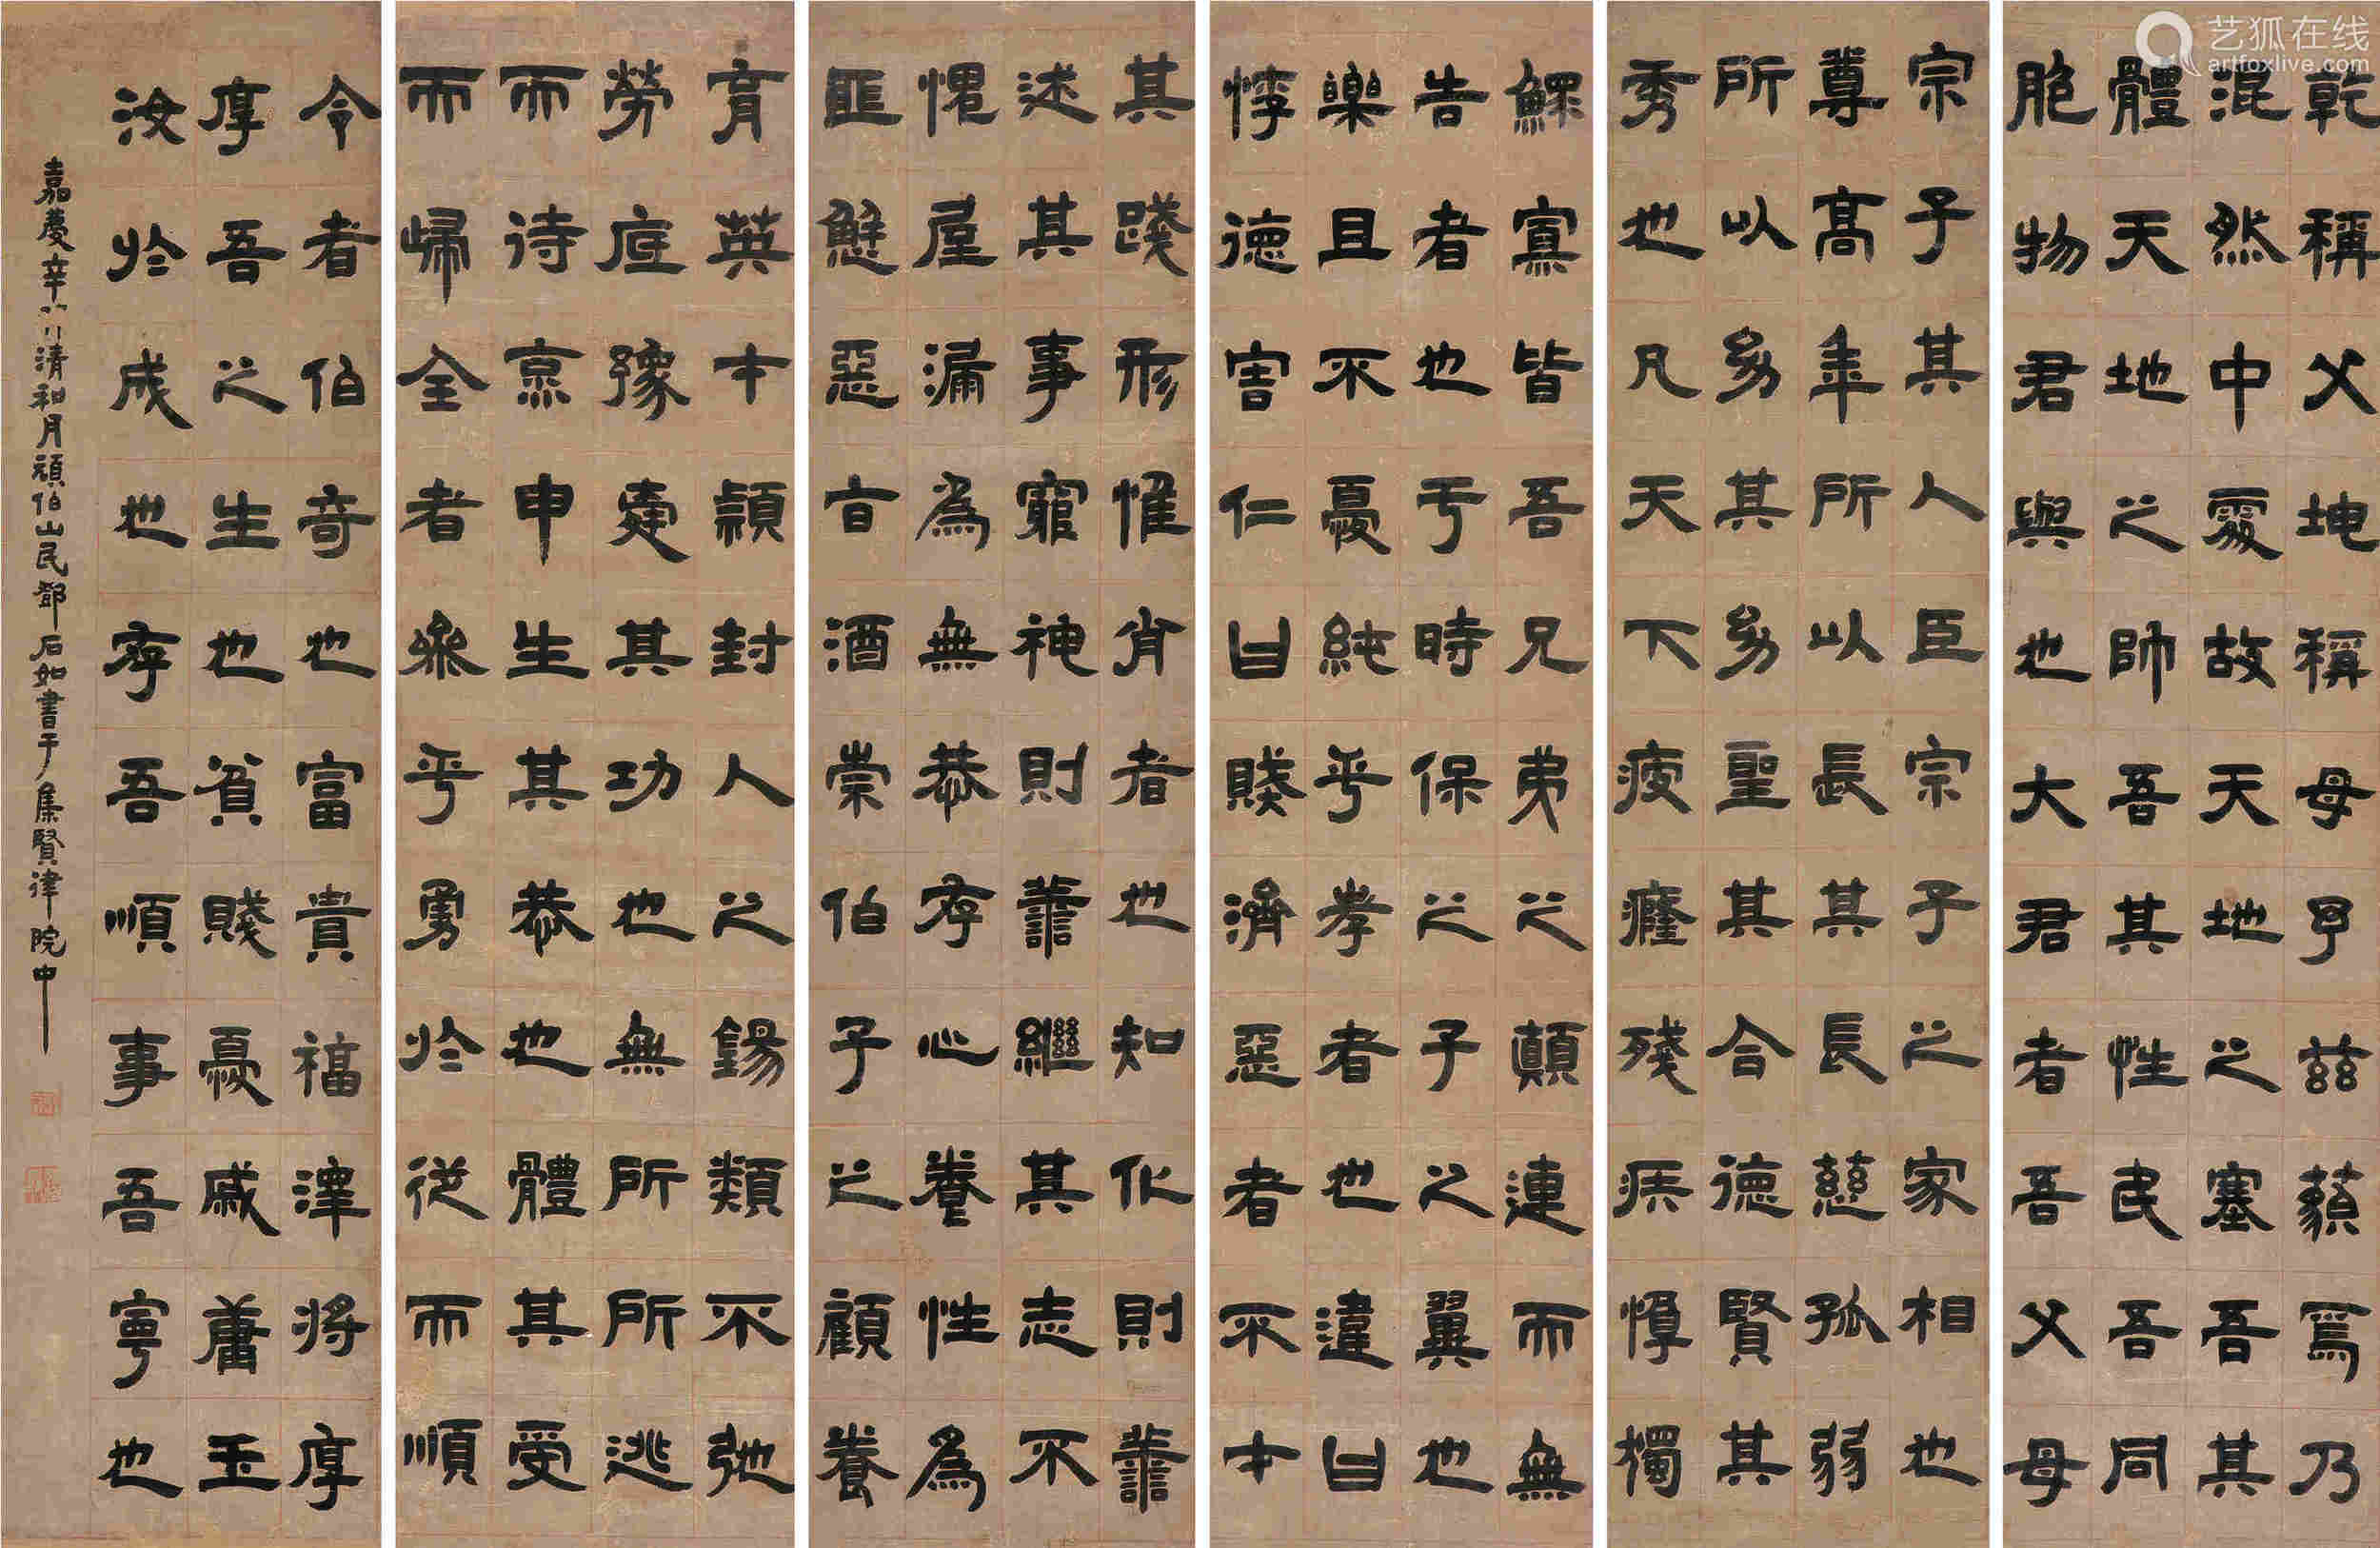 乾稱父坤稱母予茲藐焉乃
混然中處故天地之塞吾其
體天地之帥吾其性民吾同
胞物君與也大君者吾父母
宗子其人臣宗子之家相也
尊高年所以長其長慈孤弱
所以幼其幼聖其合德賢其
秀也凡天下疲癃殘疾惇獨
鰥寡皆吾兄弟之顛連而無
告者也于時保之子之翼也
樂且不憂純乎孝者也違曰
悖德害仁曰賤濟惡者不才
其踐形惟肖者也知化則善
述其事窮神則善繼其志不
愧屋漏為無恭存心養性為
匪懈惡旨酒崇伯子之顧養
育英才穎封人之錫類不弛
勞底豫舜其功也無所所逃
而待烹申生其恭也體其受
而歸全者參乎勇於從而順
令者伯奇也富貴福澤將厚
厚吾之生也貧賤憂戚庸玉
汝於成也存吾順事吾寧也
嘉慶辛清和月頑伯山民鄧石如書于集賢律院中
艺狐在线
artfoxlive.com